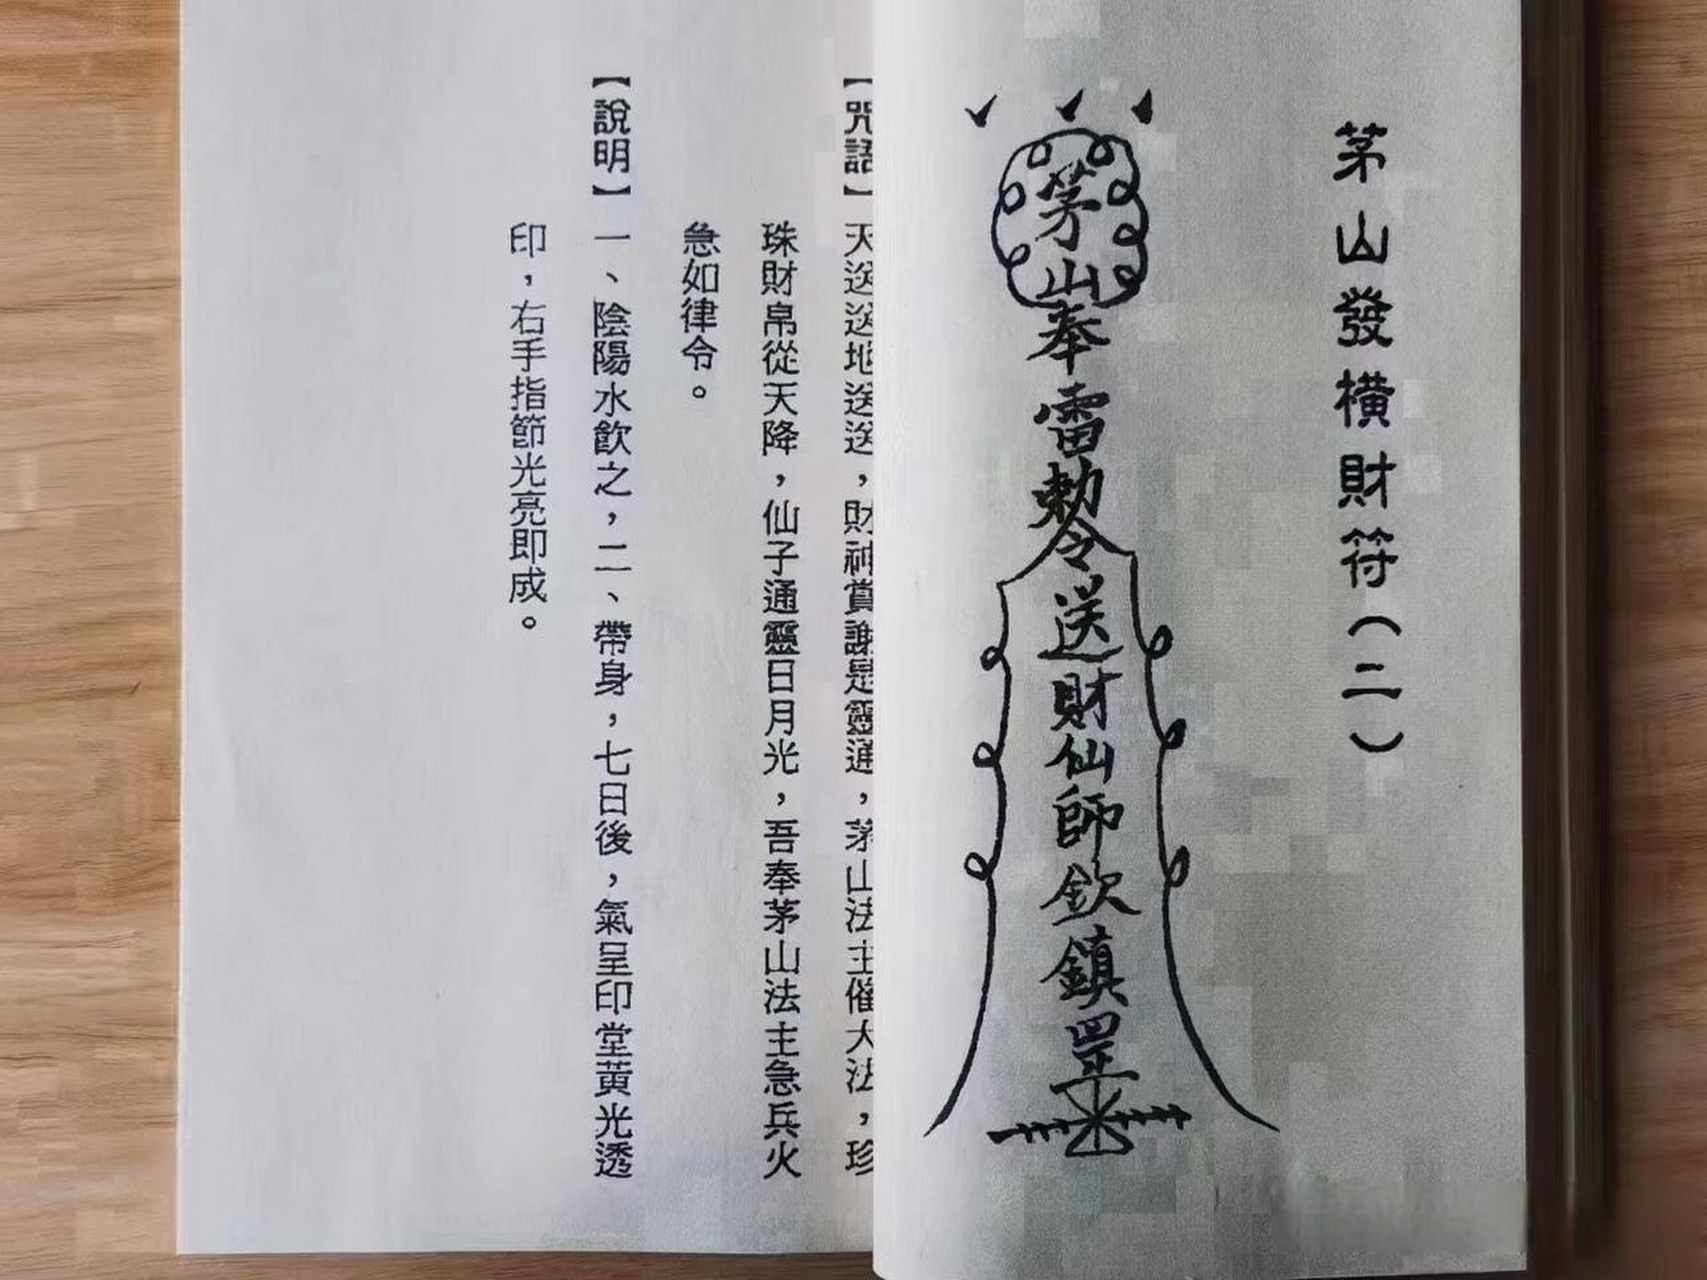 茅山發橫財符（二）
茅山奉雷勅令送財仙師欽鎮罡
【咒語】天送送地送送，財神賞謝是靈通，茅山法主催大法，珍
珠財帛從天降，仙子通靈日月光，吾奉茅山法主急兵火
急如律令。
【說明】一、陰陽水飲之，二、帶身，七日後，氣呈印堂黃光透
印，右手指節光亮即成。